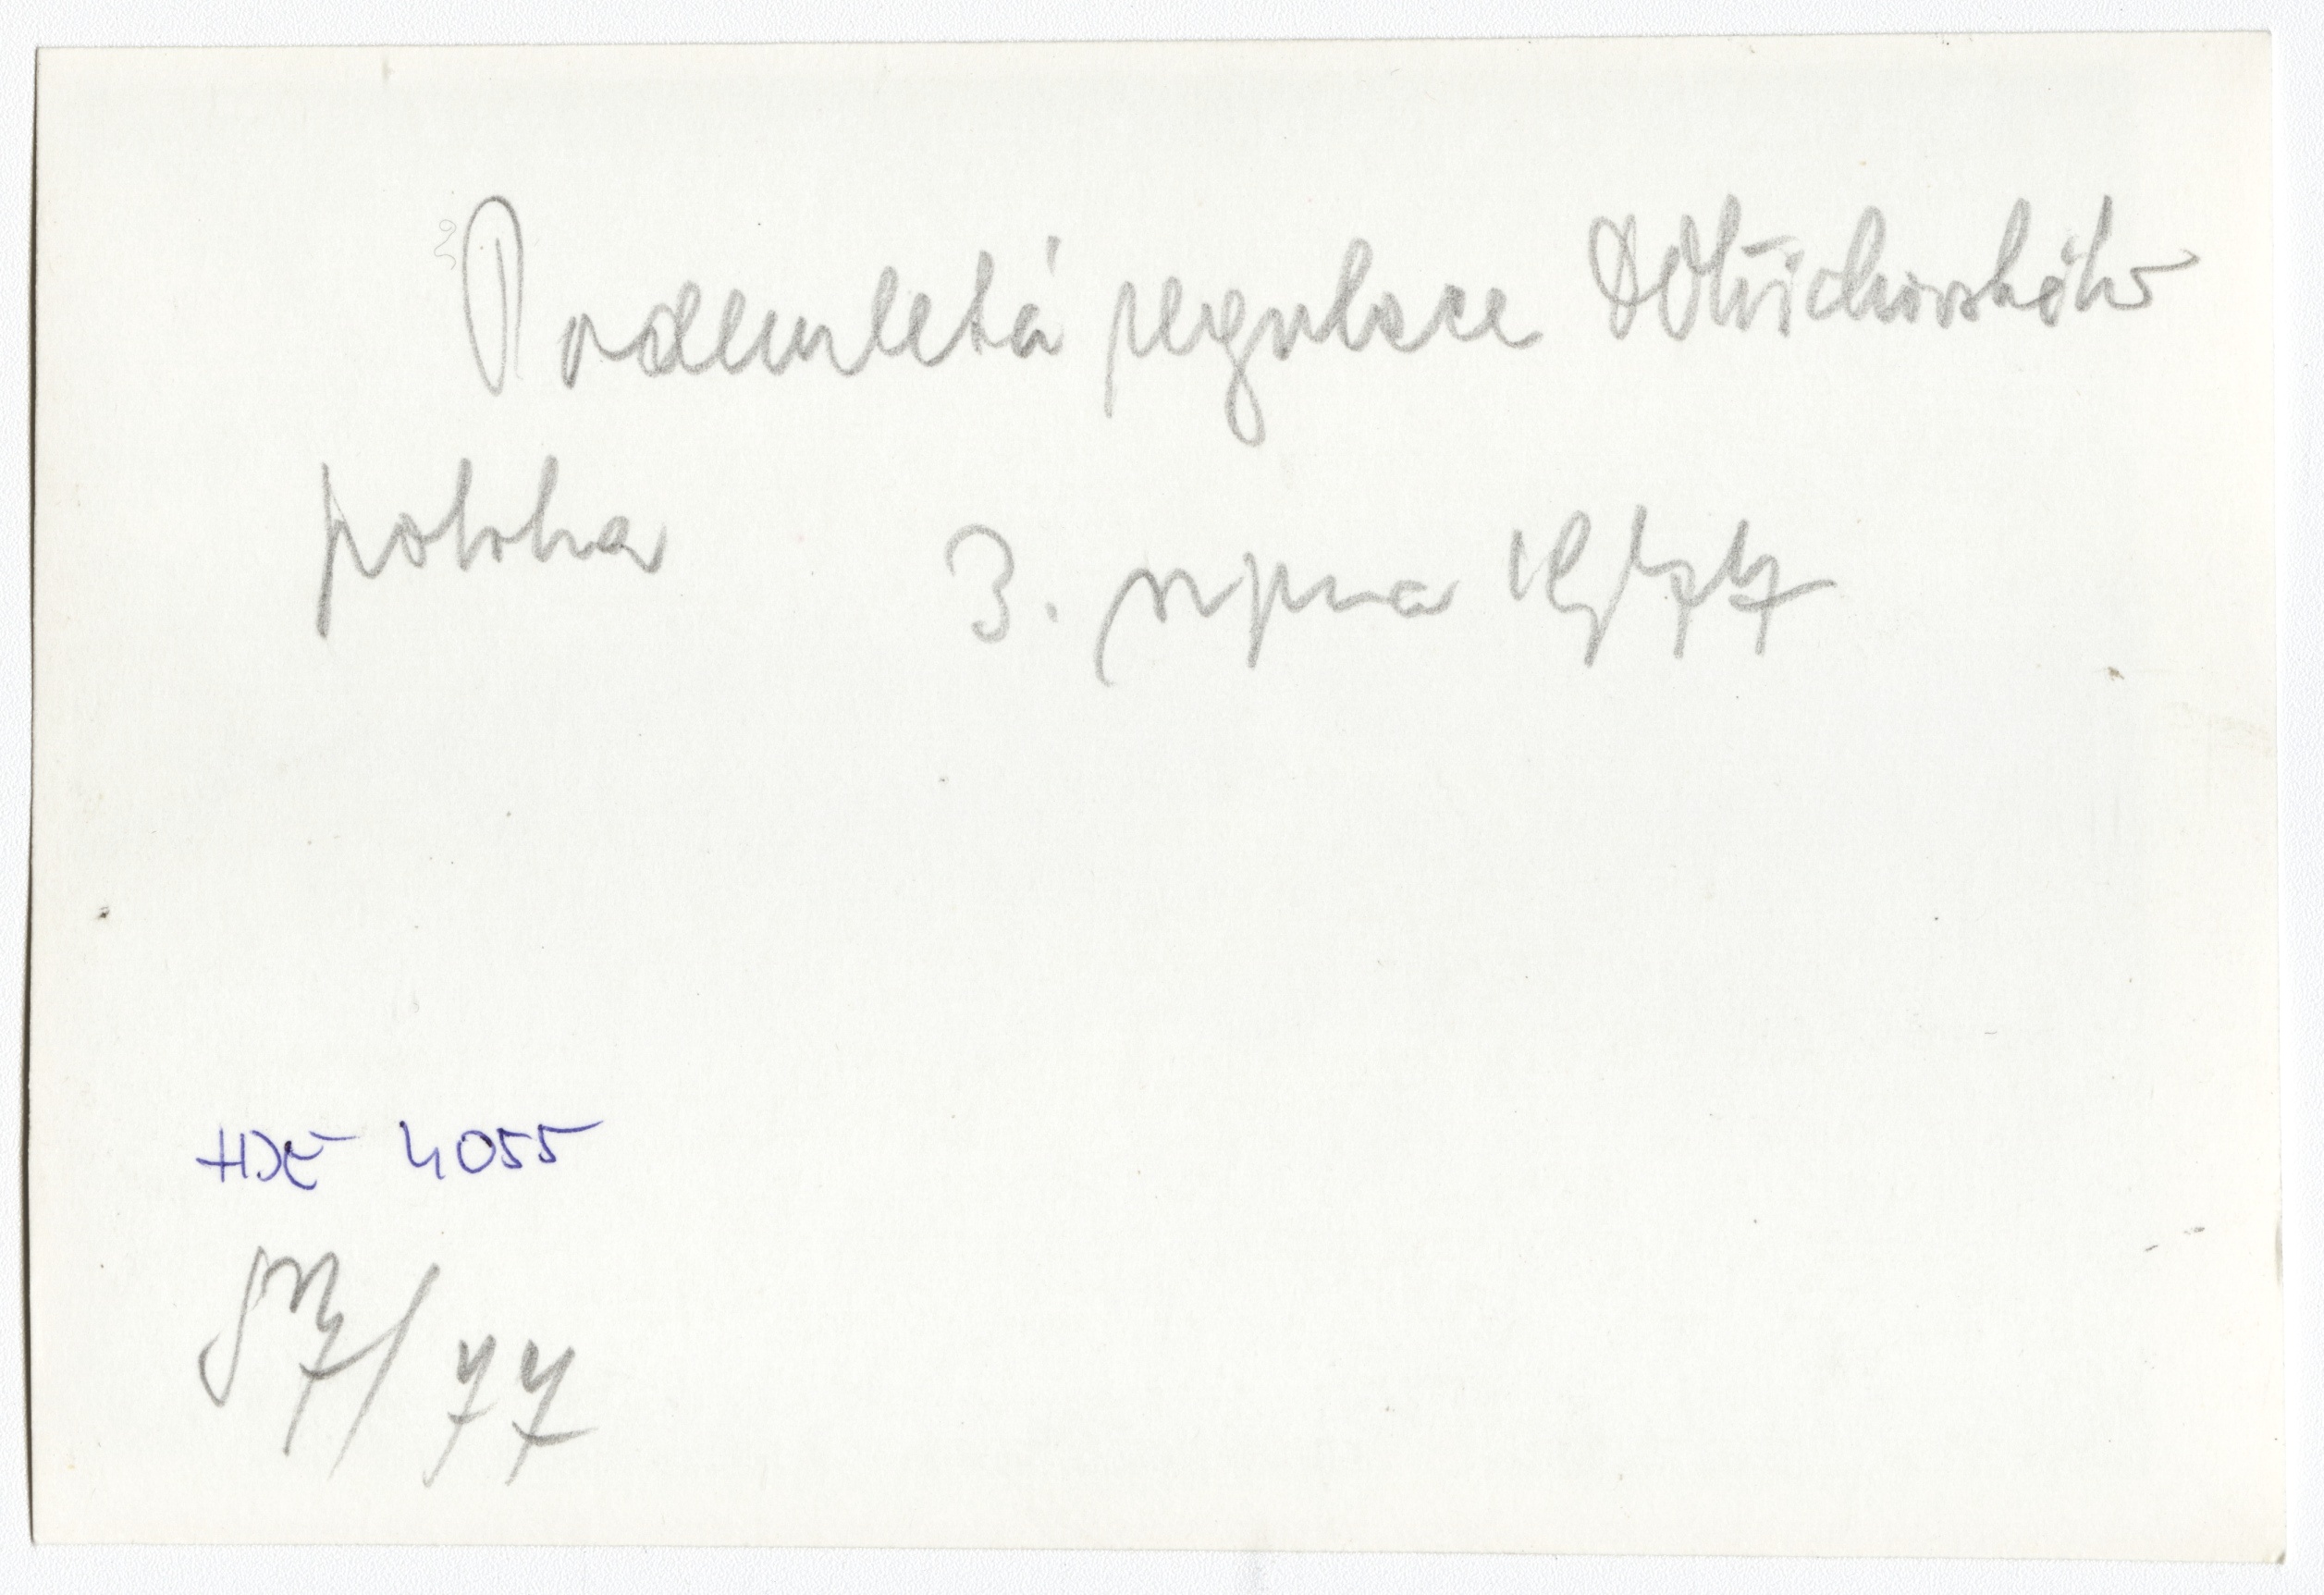 Podemletá regulace Oldřichovského
potoka 3. srpna 1977
HDE 4055
57/77